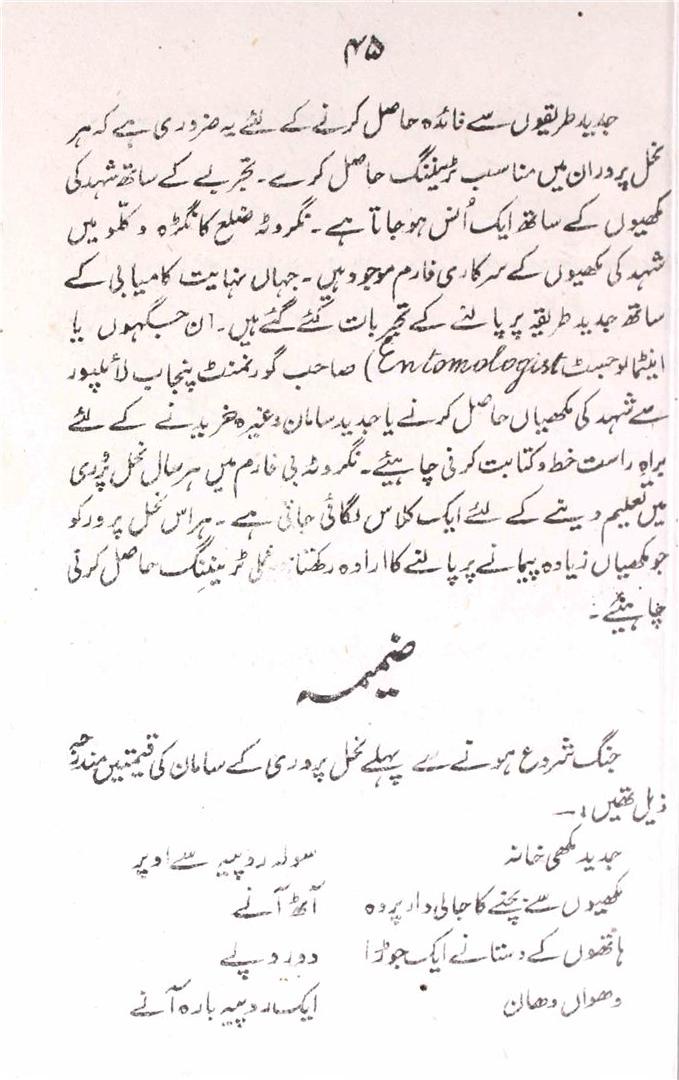 ۴۵
جدید طریقوں سے فائدہ حاصل کرنے کے لئے یہ ضروری ہے کہ ہر
نحل پرور ان میں مناسب ٹریننگ حاصل کرے۔ تجربے کے ساتھ شہد کی
مکھیوں کے ساتھ ایک اُنس ہو جاتا ہے۔ نگروٹہ ضلع کانگڑہ و کلّو میں
شہد کی مکھیوں کے سرکاری فارم موجود ہیں۔ جہاں نہایت کامیابی کے
ساتھ جدید طریقہ پر پالنے کے تجربات کئے گئے ہیں۔ ان جگہوں یا
اینٹمالوجسٹ Entomologist) صاحب گورنمنٹ پنجاب لائلپور
سے شہد کی مکھیاں حاصل کرنے یا جدید سامان وغیرہ خریدنے کے لئے
براہِ راست خط و کتابت کرنی چاہیئے۔ نگروٹہ بی فارم میں ہر سال نحل پروری
میں تعلیم دینے کے لئے ایک کلاس لگائی جاتی ہے۔ ہر اس نحل پرور کو
جو مکھیاں زیادہ پیمانے پر پالنے کا ارادہ رکھتا ٹریننگ حاصل کرنی
چاہیئے۔
ضمیمہ
جنگ شروع ہونے سے پہلے نحل پروری کے سامان کی قیمتیں مندرجہ
ذیل تھیں :۔
جدید مکھی خانہ سولہ روپیہ سے اوپر
مکھیوں سے بچنے کا جالی دار پردہ آٹھ آنے
ہاتھوں کے دستانے ایک جوڑا دو روپے
دھواں دھان ایک روپیہ بارہ آنے